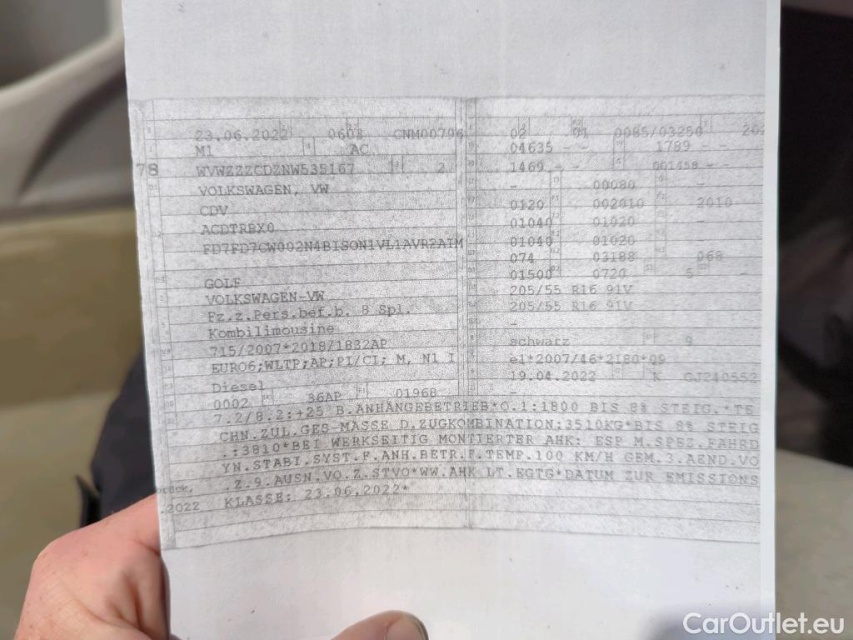 23.06.2022 0603 CNM00796 02 01 0085/03250
M1 AC 04635 - - 1789 - -
78 WVWZZZCDZNW535167 2 1469 - - 001458 - -
VOLKSWAGEN, VW - 00080 -
CDV 0120 002010 2010
ACDTRBX0 01040 01020 -
FD7FD7CW002N4BISON1VL1AVR2A1M 01040 01020 -
074 03188 068
GOLF 01500 0720 5 -
VOLKSWAGEN-VW 205/55 R16 91V
Fz.z.Pers.bef.b. 8 Spl. 205/55 R16 91V
Kombilimousine -
715/2007*2018/1832AP schwarz 9
EURO6;WLTP;AP;PI/CI; M, N1 I e1*2007/46*2180*09
Diesel 19.04.2022 K GJ240552
0002 36AP 01968 -
7.2/8.2:+25 B.ANHÄNGEBETRIEB*O.1:1800 BIS 8% STEIG.*TE
CHN.ZUL.GES-MASSE D.ZUGKOMBINATION:3510KG*BIS 8% STEIG
.:3810*BEI WERKSEITIG MONTIERTER AHK: ESP M.SPEZ.FAHRD
YN.STABI.SYST.F.ANH.BETR.F.TEMP.100 KM/H GEM.3.AEND.VO
.Z.9.AUSN.VO.Z.STVO*WW.AHK LT.EGTG*DATUM ZUR EMISSIONS
2022 KLASSE: 23.06.2022*
CarOutlet.eu